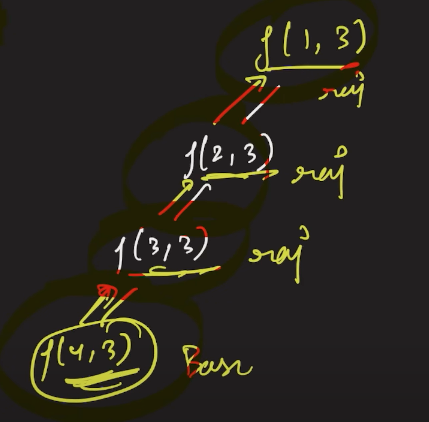 f(1,3)
raj
f(2,3) raj
f(3,3) raj
f(4,3) Base